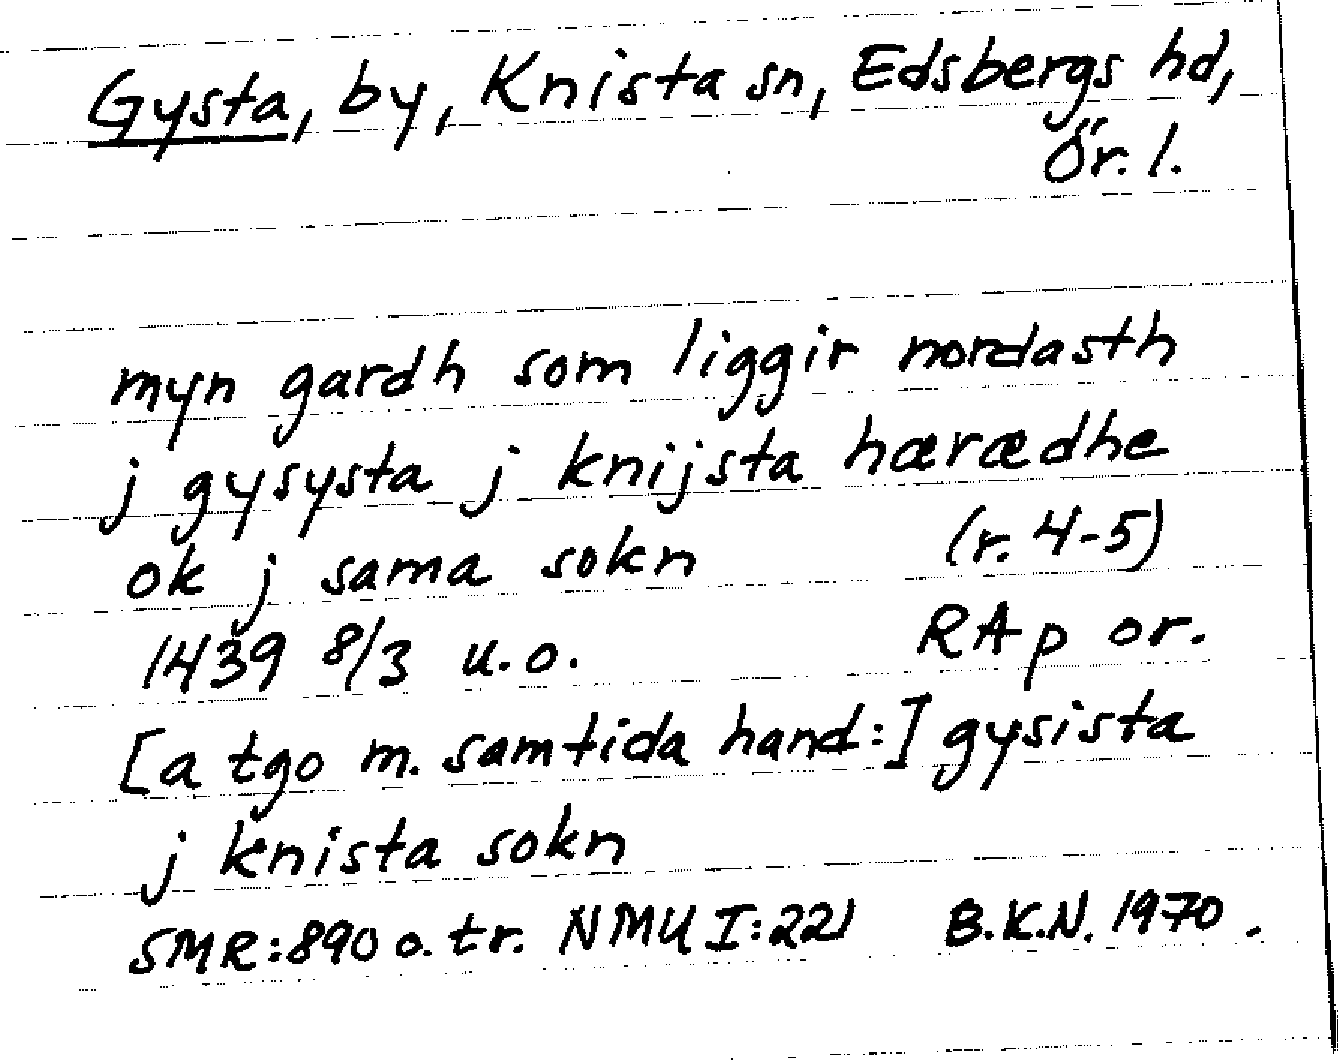 Gysta, by, Knista sn, Edsbergs hd,
Ör. l.
myn gardh som liggir nordasth
j gysysta j knijsta hærædhe
ok j sama sokn (r. 4-5)
1439 8/3 u.o. RAp or.
[a tgo m. samtida hand:] gysista
j knista sokn
SMR:890 o. tr. NMU I:221 B.K.N. 1970.